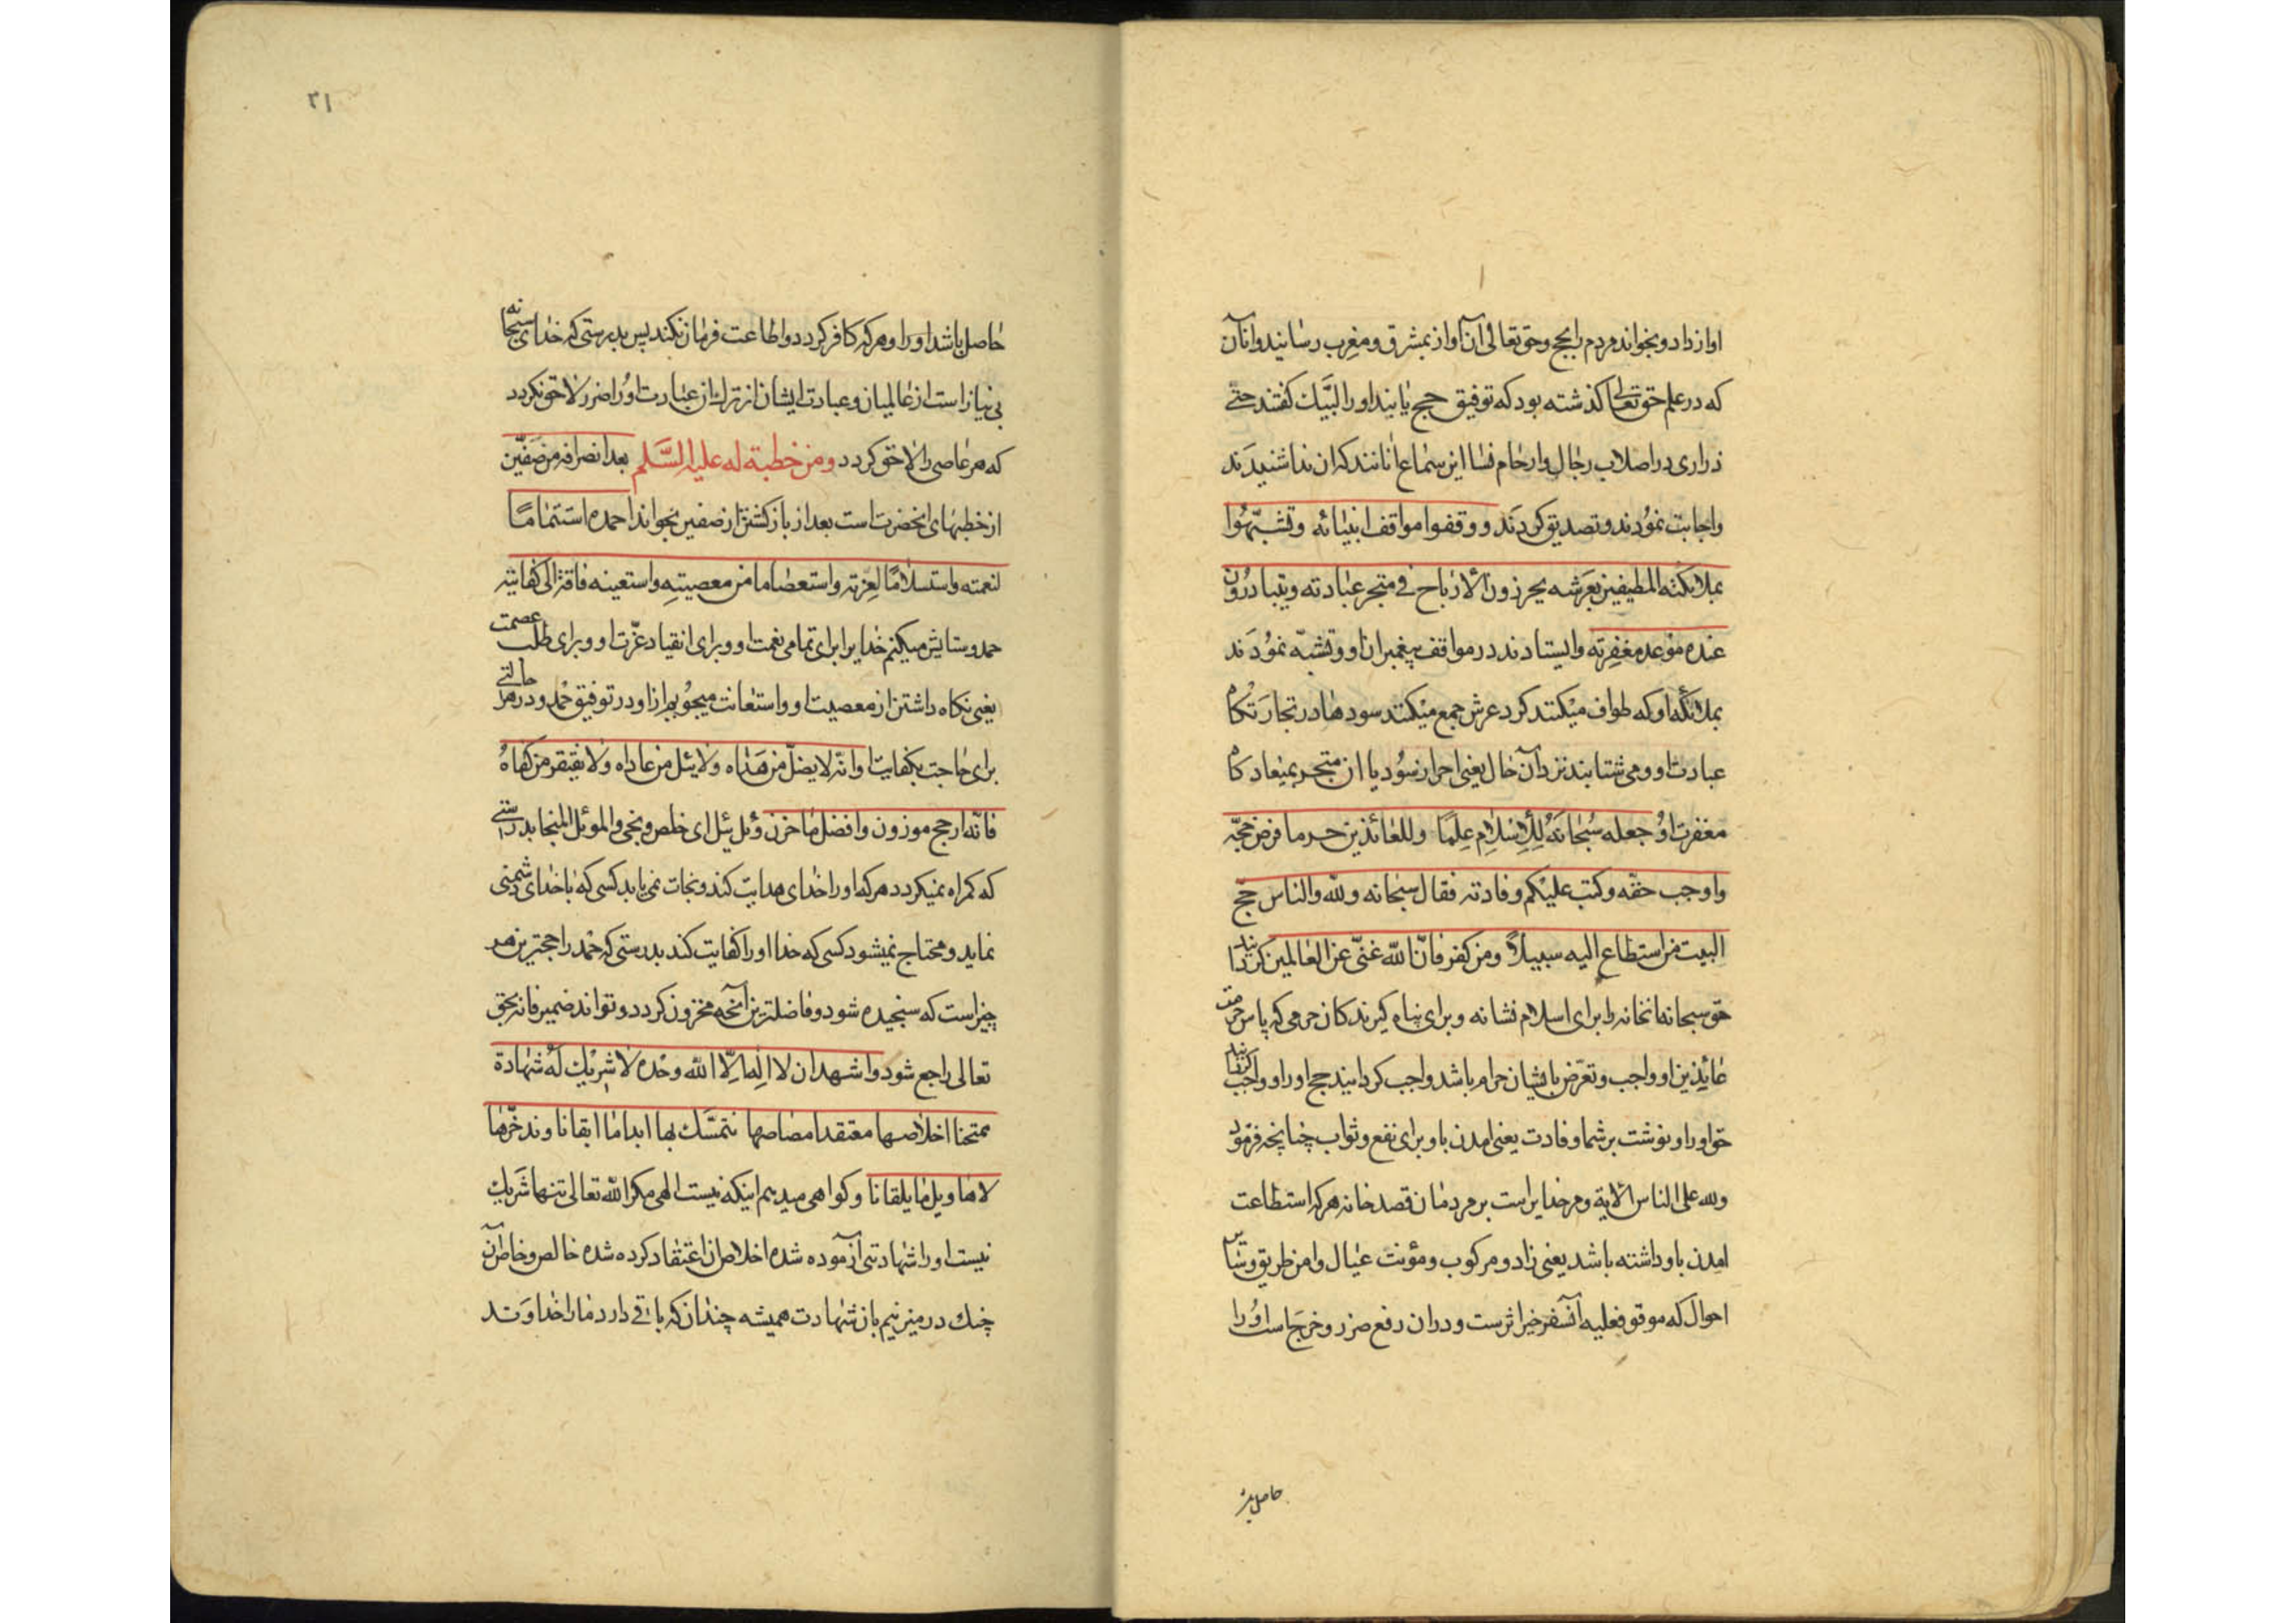 اواز داد و بخواند مردم را بحج و حق تعالی آن آواز بمشرق و مغرب رسانید و انان
که در علم حق تعالی کذشته بود که توفیق حج یابند او را لبیک کفتند حتی
ذراری در اصلاب رجال و ارحام نسا این سماع انانند که ان ندا شنیدند
و اجابت نمودند و تصدیق کردند و وقفوا مواقف انبیائه وتشبهوا
بملائکته المطیفین بعرشه یحرزون الارباح فی متجر عبادته ویتبادرون
عنده موعد مغفرته و ایستادند در مواقف پیغمبران او و تشبه نمودند
بملائکه او که طواف میکنند کرد عرش جمع میکنند سودها در تجارتکاه
عبادت او و می شتابند نزد آن حال یعنی احراز سود یا ان متجر بمیعادکاه
مغفرت او جعله سبحانه للاسلام علما وللعائذین حرما فرض حجه
واوجب حقه وکتب علیکم وفادته فقال سبحانه ولله والناس حج
البیت من استطاع الیه سبیلا ومن کفر فان الله غنی عن العالمین کردانید
حق سبحانه انخانه را برای اسلام نشانه و برای پناه کیرندکان حرمی که پاس حرمت
عائذین او واجب و تعرض بایشان حرام باشد واجب کردانید حج او را و واجب کردانید
حق او را و نوشت بر شما وفادت یعنی امدن باو برای نفع و ثواب چنانچه فرمود
ولله علی الناس الایة و مر خدایراست بر مردمان قصد خانه هر که استطاعت
امدن باو داشته باشد یعنی زاد و مرکوب و مؤنت عیال و امن طریق و سایر
احوال که موقوف علیه آنسفر خیر اثرست و در ان دفع ضرر و خرج است او را
حاصل باشد
۳۱
حاصل باشد او را و هر که کافر کردد و اطاعت فرمان نکند پس بدرستی که خدای سبحانه
بی نیاز است از عالمیان و عبادت ایشان از ترک ان عبادت او را ضرر لاحق نکردد
که هر عاصی را لاحق کردد ومن خطبة له علیه السلم بعد انصرافه من صفین
از خطبهای انحضرت است بعد از باز کشتن از صفین بخواند احمده استتماما
لنعمته واستسلاما لعزته واستعصاما من معصیته واستعینه فاقة الی کفایته
حمد و ستایش میکنم خدایرا برای تمامی نعمت او و برای انقیاد عزت او و برای طلب عصمت
یعنی نکاه داشتن از معصیت او و استعانت میجویم از او در توفیق حمد و در هر حالتی
برای حاجت بکفایت او انه لا یضل من هداه ولا یئل من عاداه ولا یفتقر من کفاه
فانه ارجح موزون وافضل ما خزن وئل یئل ای خلص ونجی والموئل المنجا بدرستی
که کمراه نمیکردد هر که او را خدای هدایت کند و نجات نمی یابد کسی که با خدای دشمنی
نماید و محتاج نمیشود کسی که خدا او را کفایت کند بدرستی که حمد راجحترین هر
چیز است که سنجیده شود و فاضلترین آنچه مخزون کردد و تواند ضمیر فانه بحق
تعالی راجع شود واشهد ان لا اله الا الله وحده لا شریک له شهادة
ممتحنا اخلاصها معتقدا مصاصها نتمسک بها ابدا ما ابقانا وندخرها
لاهاویل ما یلقانا و کواهی میدهم اینکه نیست الهی مکر الله تعالی تنها شریک
نیست او را شهادتی آزموده شده اخلاص ان اعتقاد کرده شده خالص و خاطر آن
چنک در میزنیم بان شهادت همیشه چندان که باقی دارد ما را خداوند